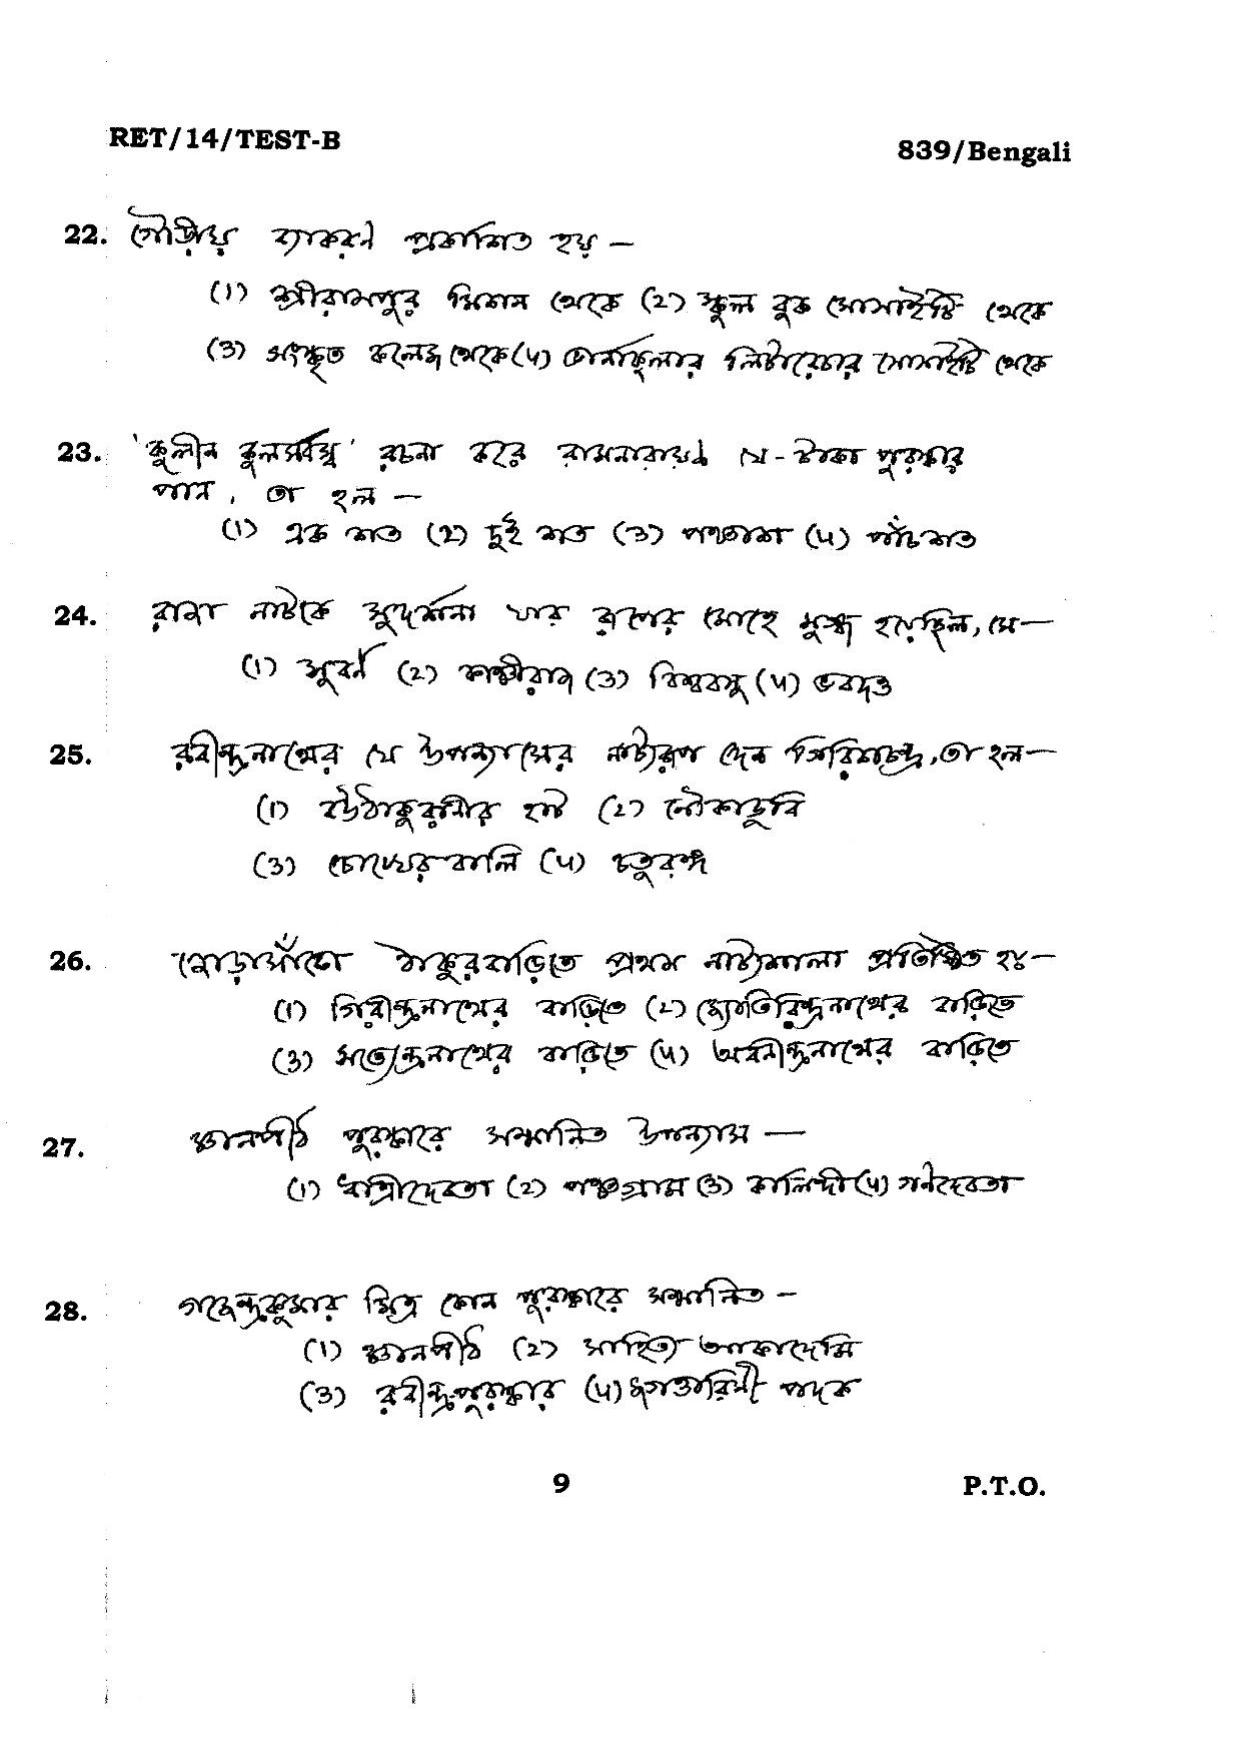 RET/14/TEST-B
839/Bengali
22. গৌড়ীয় ব্যাকরণ প্রকাশিত হয় —
(১) শ্রীরামপুর মিশন থেকে (২) স্কুল বুক সোসাইটি থেকে
(৩) সংস্কৃত কলেজ থেকে (৪) ভার্নাকুলার লিটারেচার সোসাইটি থেকে
23. 'কুলীন কুলসর্বস্ব' রচনা করে রামনারায়ণ যে-টাকা পুরস্কার
পান, তা হল —
(১) এক শত (২) দুই শত (৩) পঞ্চাশ (৪) পাঁচশত
24. রাজা নাটকে সুদর্শনা যার রূপের মোহে মুগ্ধ হয়েছিল, সে —
(১) সুবর্ণ (২) কাঞ্চীরাজ (৩) বিশ্ববসু (৪) ভবদত্ত
25. রবীন্দ্রনাথের যে উপন্যাসের নাট্যরূপ দেন গিরিশচন্দ্র, তা হল —
(১) বউঠাকুরানীর হাট (২) নৌকাডুবি
(৩) চোখের বালি (৪) চতুরঙ্গ
26. জোড়াসাঁকো ঠাকুরবাড়িতে প্রথম নাট্যশালা প্রতিষ্ঠিত হয় —
(১) গিরীন্দ্রনাথের বাড়িতে (২) জ্যোতিরিন্দ্রনাথের বাড়িতে
(৩) সত্যেন্দ্রনাথের বাড়িতে (৪) অবনীন্দ্রনাথের বাড়িতে
27. জ্ঞানপীঠ পুরস্কারে সম্মানিত উপন্যাস —
(১) ধাত্রীদেবতা (২) পঞ্চগ্রাম (৩) কালিন্দী (৪) গণদেবতা
28. গজেন্দ্রকুমার মিত্র কোন পুরস্কারে সম্মানিত —
(১) জ্ঞানপীঠ (২) সাহিত্য আকাদেমি
(৩) রবীন্দ্রপুরস্কার (৪) জগত্তারিণী পদক
9
P.T.O.